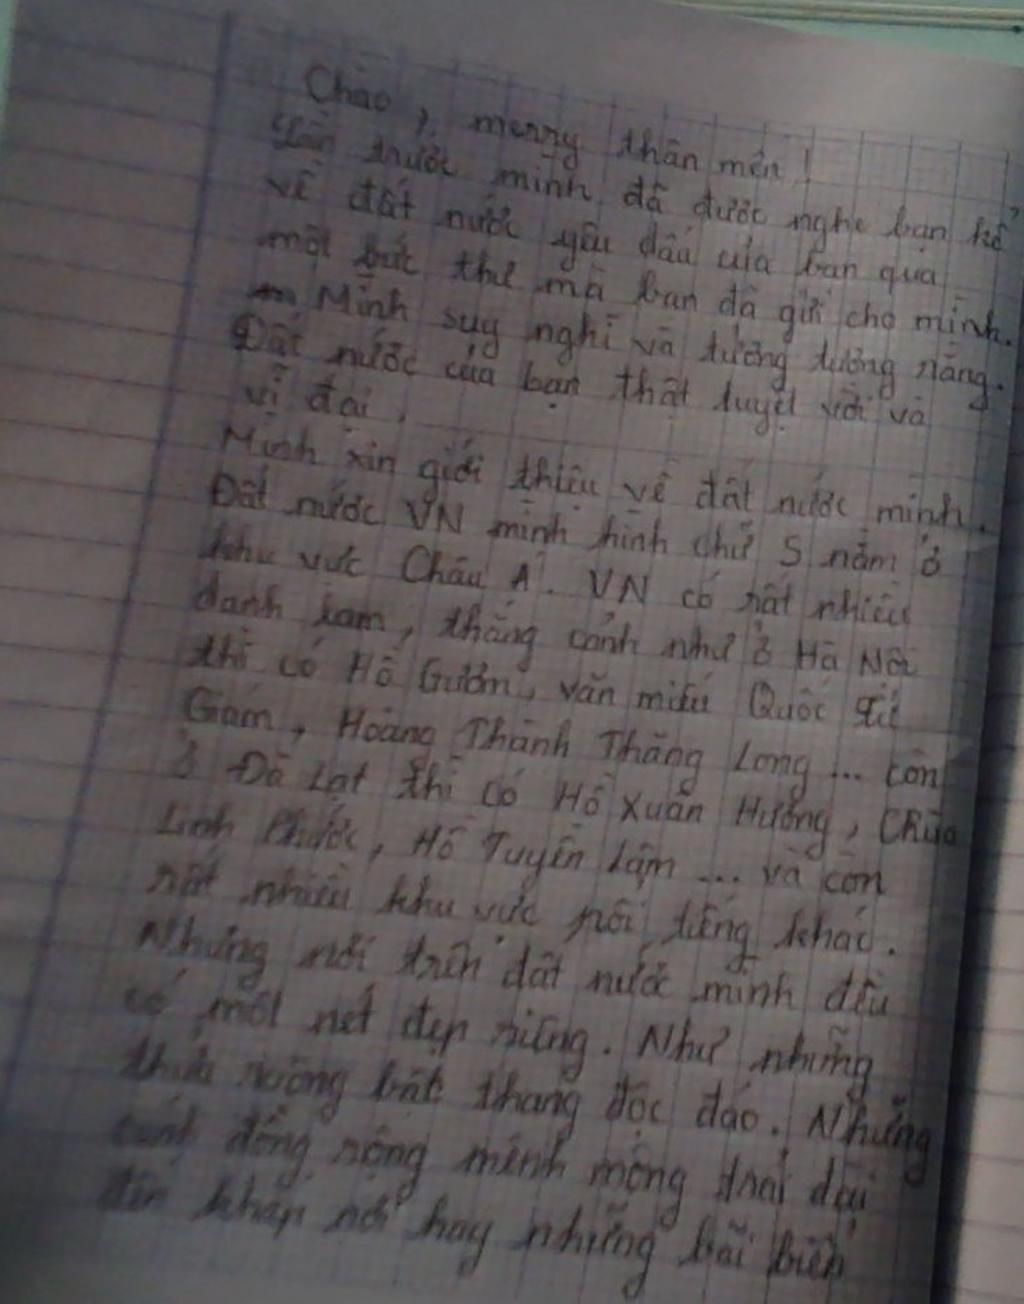 Chào, merry thân mến!
Lần trước mình đã được nghe bạn kể
về đất nước yêu dấu của bạn qua
một bức thư mà bạn đã gửi cho mình.
Mình suy nghĩ và tưởng tượng rằng.
Đất nước của bạn thật tuyệt vời và
vĩ đại,
Mình xin giới thiệu về đất nước mình.
Đất nước VN mình hình chữ S nằm ở
khu vực Châu Á. VN có rất nhiều
danh lam, thắng cảnh như ở Hà Nội
thì có Hồ Gươm, văn miếu Quốc Tử
Giám, Hoàng Thành Thăng Long ... còn
ở Đà Lạt thì có Hồ Xuân Hương, Chùa
Linh Phước, Hồ Tuyền Lâm ... và còn
rất nhiều khu vực nổi tiếng khác.
Những nơi trên đất nước mình đều
có một nét đẹp riêng. Như những
thửa ruộng bật thang độc đáo. Những
cánh đồng rộng mênh mông trải dài
đến khắp nơi hay những bãi biển